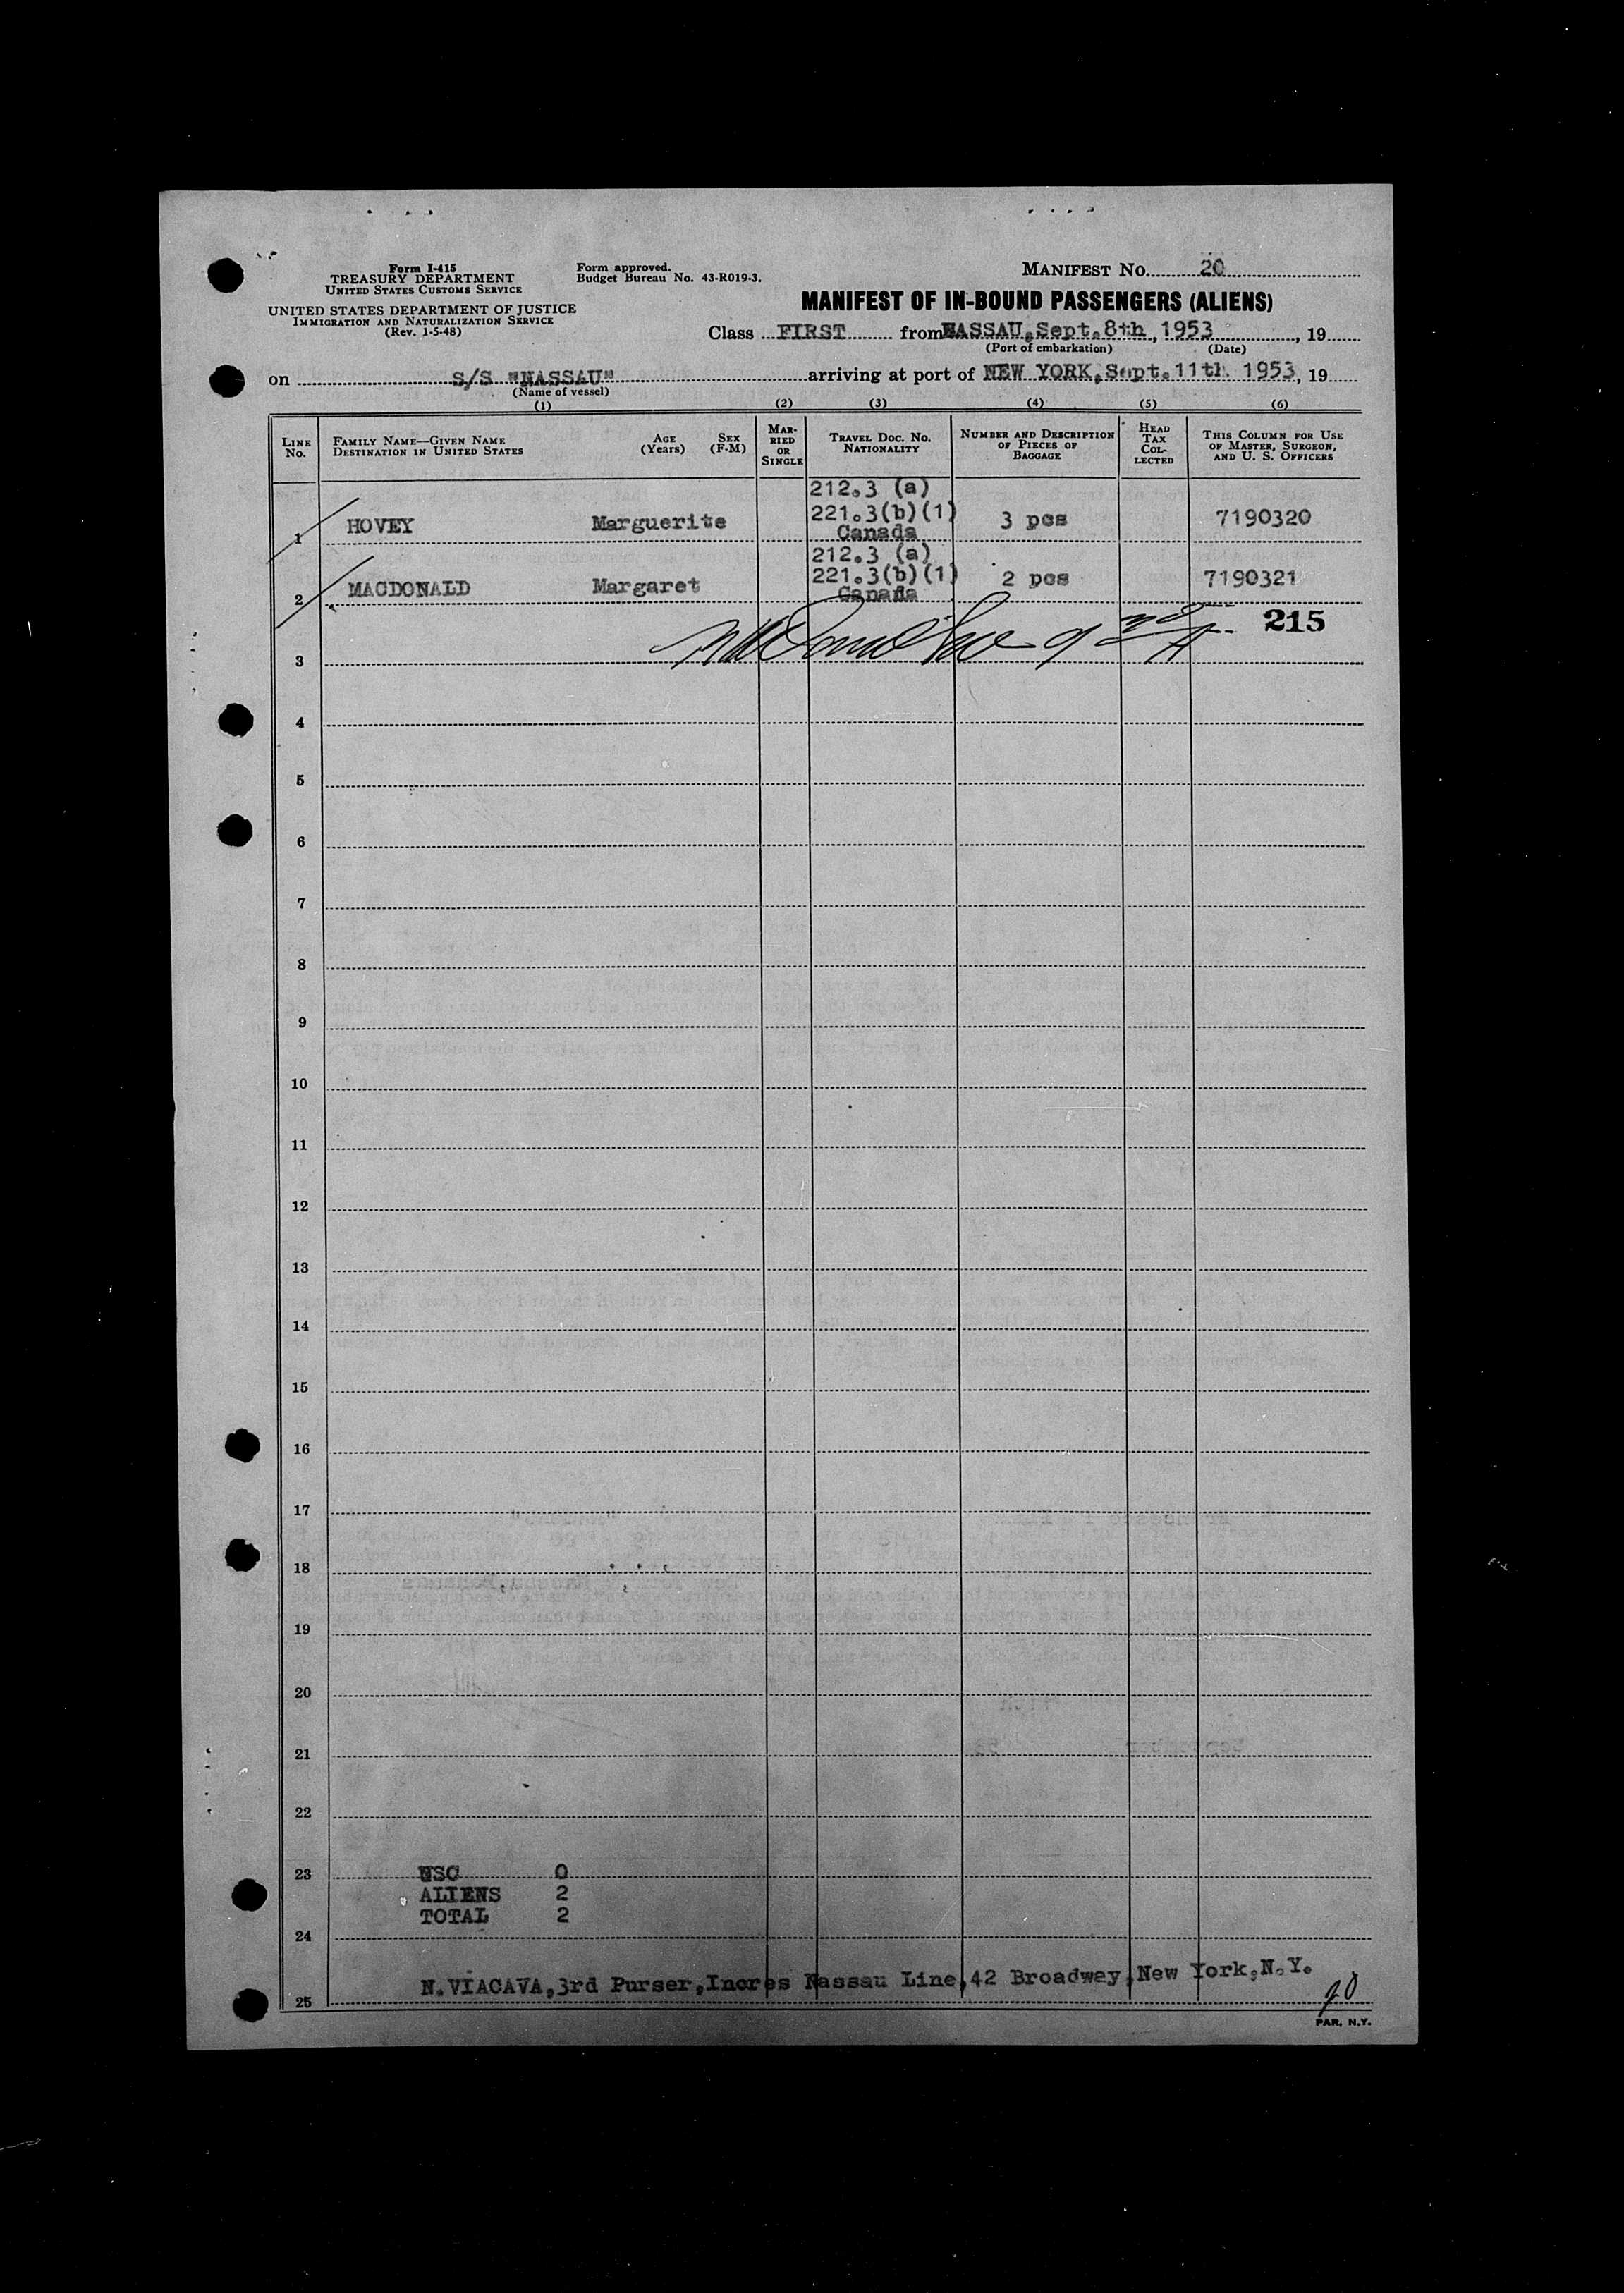 Form I-415
TREASURY DEPARTMENT
UNITED STATES CUSTOMS SERVICE
UNITED STATES DEPARTMENT OF JUSTICE
IMMIGRATION AND NATURALIZATION SERVICE
(Rev. 1-5-48)
Form approved.
Budget Bureau No. 43-R019-3.
MANIFEST No. 20
MANIFEST OF IN-BOUND PASSENGERS (ALIENS)
Class FIRST from NASSAU, Sept. 8th, 1953, 19
(Port of embarkation) (Date)
on S/S "NASSAU" arriving at port of NEW YORK, Sept. 11th. 1953, 19
(Name of vessel)
(1) (2) (3) (4) (5) (6)
LINE No.
FAMILY NAME—GIVEN NAME
DESTINATION IN UNITED STATES
AGE (Years)
SEX (F-M)
MARRIED OR SINGLE
TRAVEL DOC. No.
NATIONALITY
NUMBER AND DESCRIPTION OF PIECES OF BAGGAGE
HEAD TAX COLLECTED
THIS COLUMN FOR USE OF MASTER, SURGEON, AND U. S. OFFICERS
212.3 (a)
1 HOVEY Marguerite 221.3(b)(1) 3 pcs 7190320
Canada
212.3 (a)
2 MACDONALD Margaret 221.3(b)(1) 2 pcs 7190321
Canada
215
3
4
5
6
7
8
9
10
11
12
13
14
15
16
17
18
19
20
21
22
23 USC 0
ALIENS 2
TOTAL 2
24
N. VIACAVA, 3rd Purser, Incres Nassau Line, 42 Broadway, New York, N.Y.
25
PAR, N.Y.